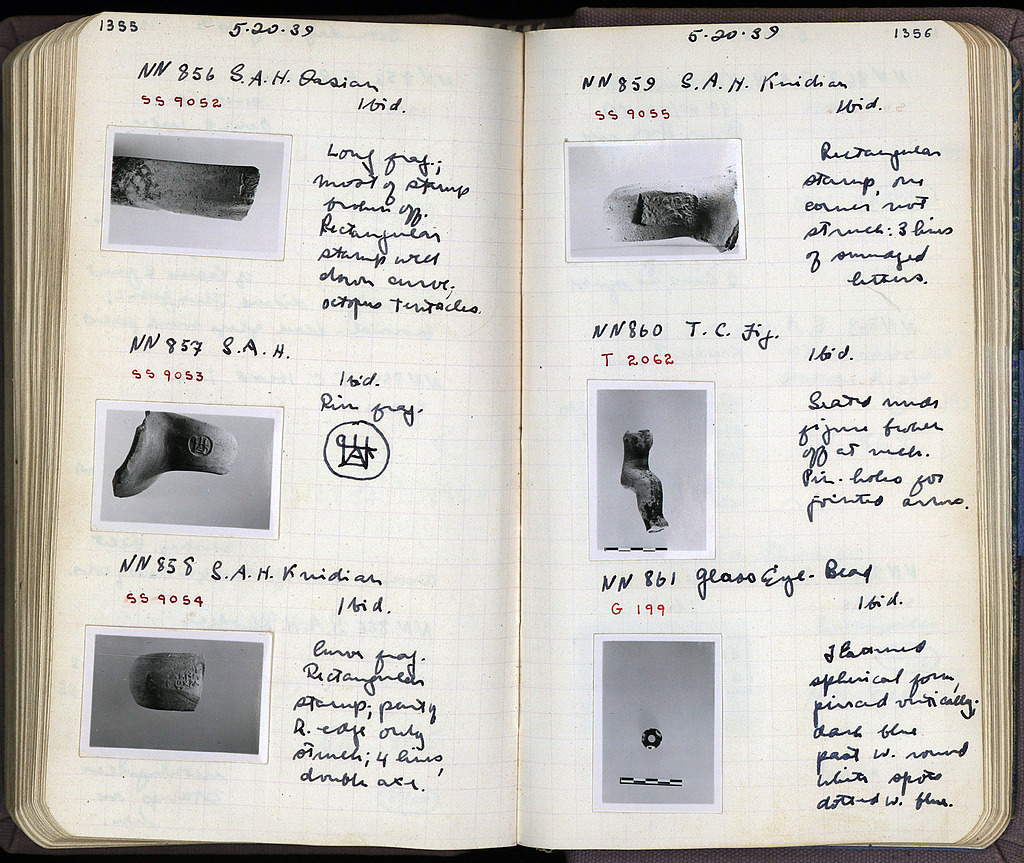 1355
5-20-39
NN 856 S.A.H. Thasian
SS 9052
Ibid.
Long frag.;
most of stamp
broken off.
Rectangular
stamp well
down curve;
octopus tentacles.
NN 857 S.A.H.
SS 9053
Ibid.
Rim frag.
NN 858 S.A.H. Knidian
SS 9054
Ibid.
Curve frag.
Rectangular
stamp;
R. edge only
struck; 4 lines,
double axe.
5-20-39
1356
NN 859 S.A.H. Knidian
SS 9055
Ibid.
Rectangular
stamp, one
corner not
struck: 3 lines
of smudged
letters.
NN 860 T.C. Fig.
T 2062
Ibid.
Seated nude
figure broken
off at neck.
Pin-holes for
jointed arms.
NN 861 Glass Eye-Bead
G 199
Ibid.
Flattened
spherical form,
pierced vertically.
dark blue
past w. round
white spots
dotted w. blue.